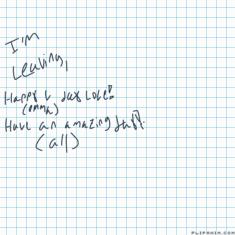 I'm
Leaving,
Happy b day Love!!
(emma)
Have an amazing day!!
(all)
FLIPANIM.COM